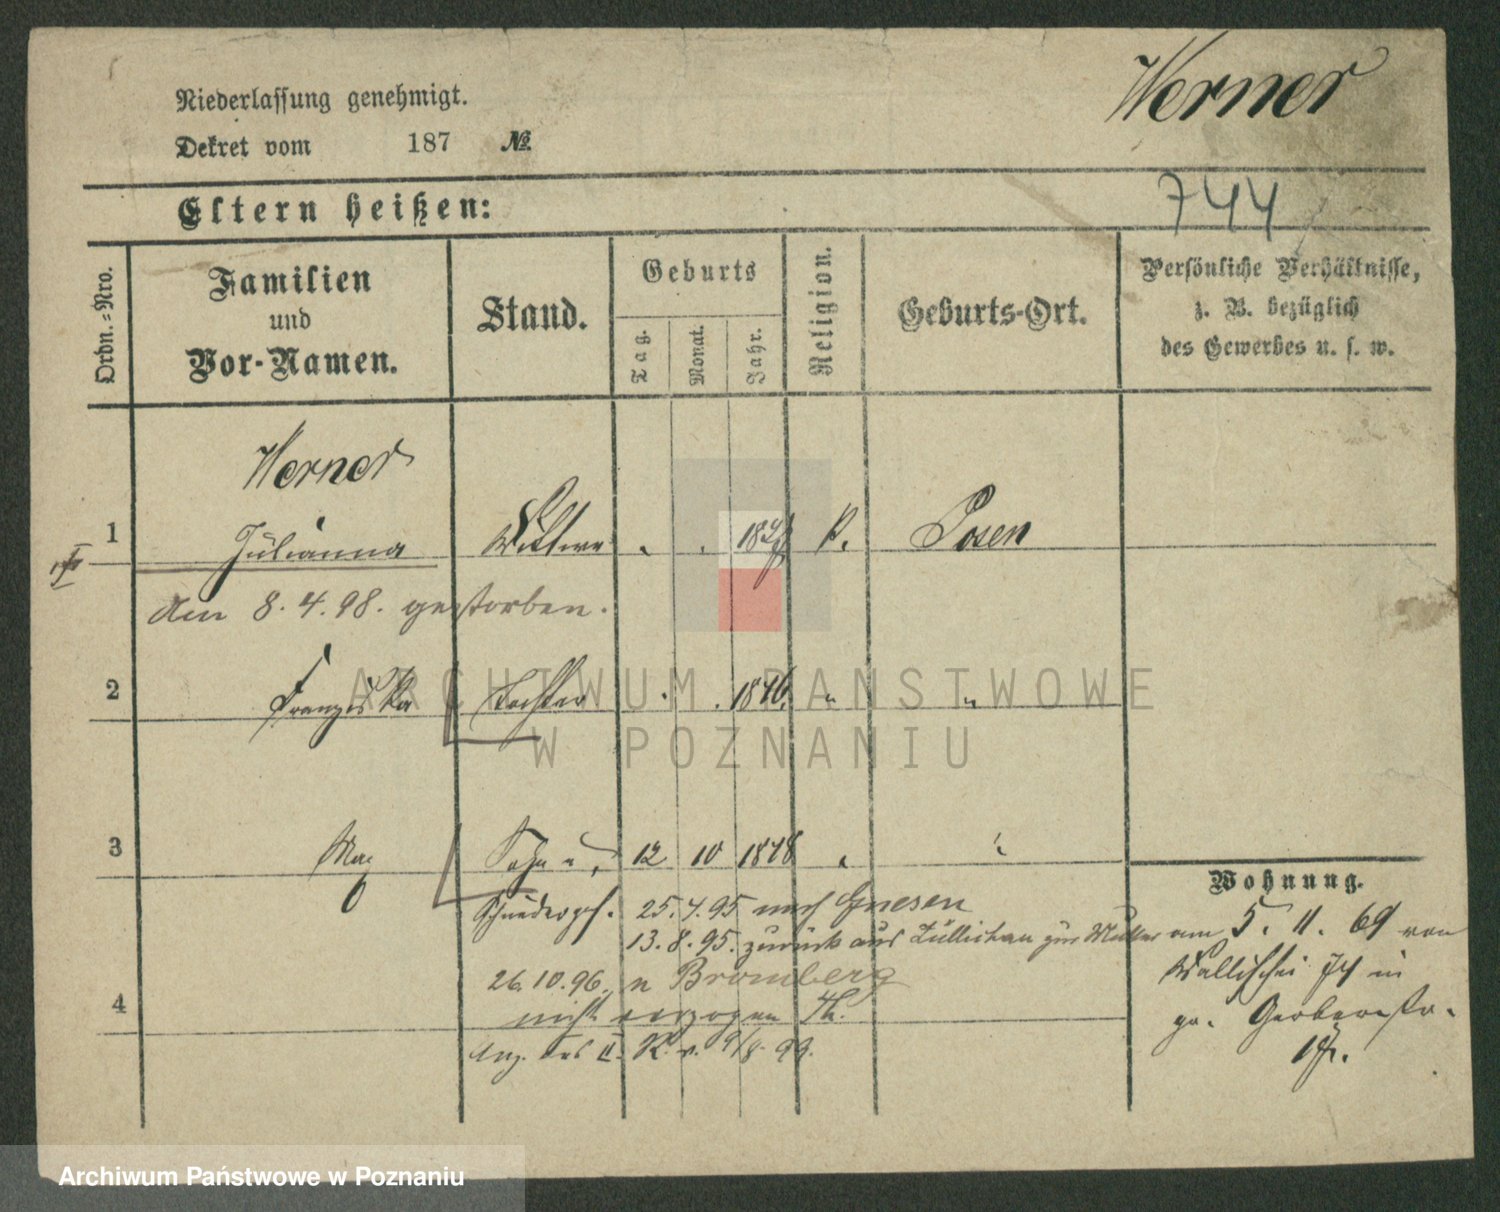 Werner
Niederlassung genehmigt.
Dekret vom 187 №
744
Eltern heißen:
Ordn.=Nro.
Familien und Vor-Namen.
Stand.
Geburts
Tag.
Monat.
Jahr.
Religion.
Geburts-Ort.
Persönliche Verhältnisse,
z. B. bezüglich
des Gewerbes u. s. w.
Werner
1 Julianna Wittwe K. Posen
Am 8.4.98. gestorben.
2 Franziska Tochter 1876. " "
3 Max Sohn 12 10 1878
Wohnung.
25.4.95 nach Gnesen
13.8.95. zurück aus Züllichau zur Mutter
am 5. 11. 69 von
Wallischei 74 in
gr. Gerberstr.
4 26.10.96. n Bromberg
nicht verzogen
9/8. 99.
ARCHIWUM PAŃSTWOWE
W POZNANIU
Archiwum Państwowe w Poznaniu